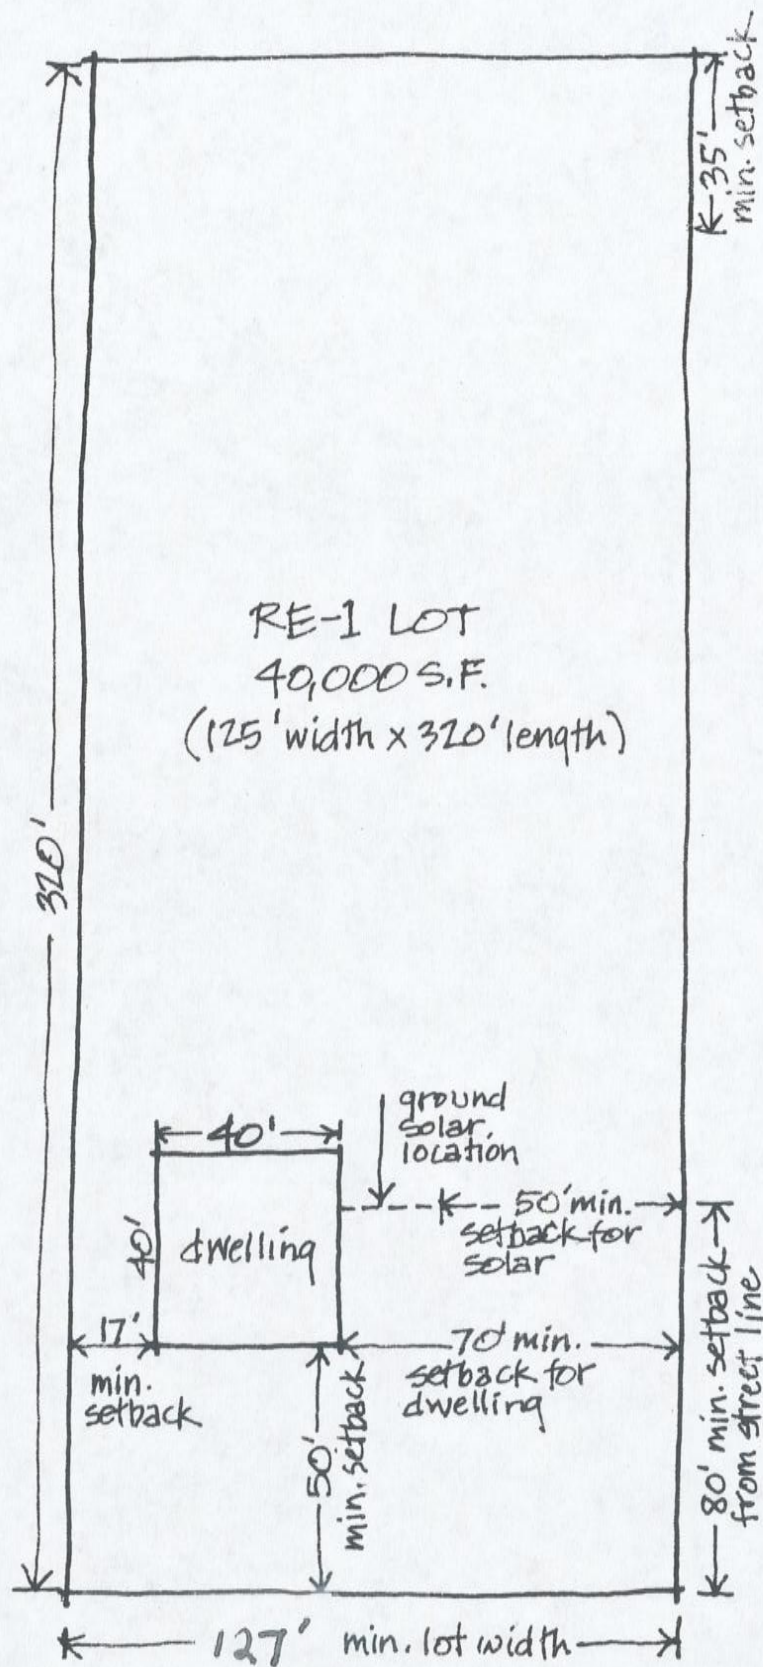 35'
min. setback
RE-1 LOT
40,000 S.F.
(125' width x 320' length)
320'
ground
solar
location
40'
50' min.
setback for
solar
40'
dwelling
17'
min.
setback
70' min.
setback for
dwelling
50'
min. setback
80' min. setback
from street line
127' min. lot width